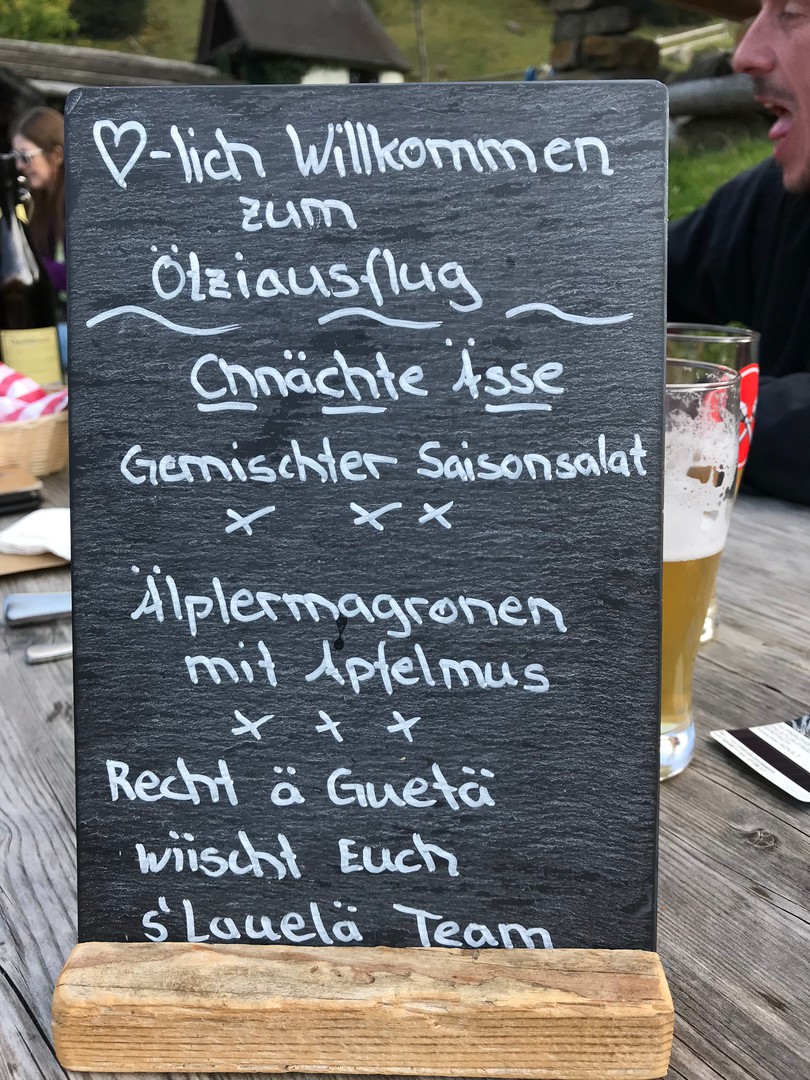 ♡-lich Willkommen
zum
Ötziausflug
Chnächte Ässe
Gemischter Saisonsalat
x x x
Älplermagronen
mit Apfelmus
x x x
Recht ä Guetä
wiischt Euch
s'Lauelä Team